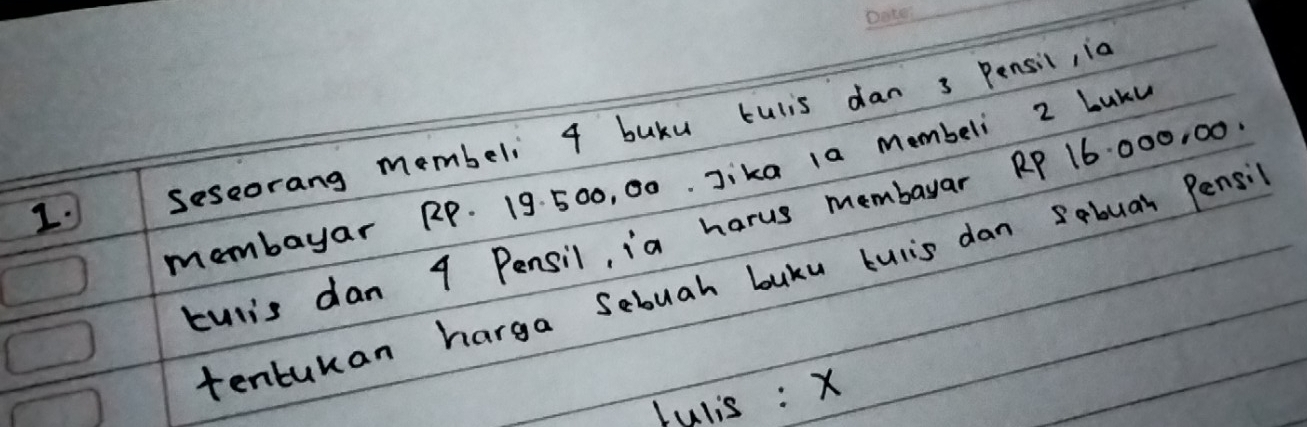 Date:
1. Seseorang membeli 4 buku tulis dan 3 Pensil, ia
membayar RP. 19.500,00. Jika ia membeli 2 buku
tulis dan 4 Pensil, ia harus membayar RP 16.000,00.
tentukan harga sebuah buku tulis dan sebuah Pensil
tulis : X